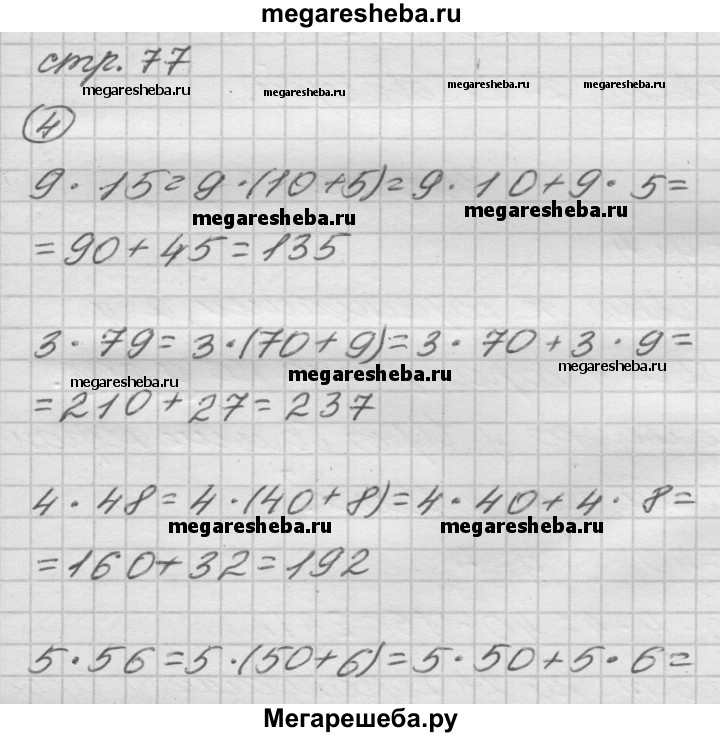 megaresheba.ru
стр. 77
megaresheba.ru megaresheba.ru megaresheba.ru megaresheba.ru
4
9 · 15 = 9 · (10 + 5) = 9 · 10 + 9 · 5 =
megaresheba.ru megaresheba.ru
= 90 + 45 = 135
3 · 79 = 3 · (70 + 9) = 3 · 70 + 3 · 9 =
megaresheba.ru megaresheba.ru megaresheba.ru
= 210 + 27 = 237
4 · 48 = 4 · (40 + 8) = 4 · 40 + 4 · 8 =
megaresheba.ru megaresheba.ru
= 160 + 32 = 192
5 · 56 = 5 · (50 + 6) = 5 · 50 + 5 · 6 =
Мегарешеба.ру